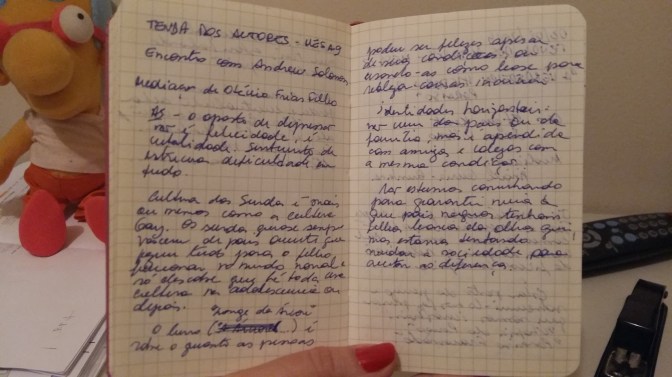 TENDA DOS AUTORES - MESA 9
Encontro com Andrew Solomon
Mediação de Otávio Frias Filho
AS - o oposto de depressão
não é felicidade, é
vitalidade. Sentimento de
extrema dificuldade em
tudo.
Cultura dos Surdos é mais
ou menos como a cultura
Gay. Os surdos quase sempre
nascem de pais ouvintes que
fazem tudo para o filho
funcionar no mundo normal e
só descobre que há toda essa
cultura na adolescência ou
depois.
Longe da Árvore
O livro ( ) é
sobre o quanto as pessoas
podem ser felizes apesar
de suas condições, ou
usando-as como base para
realizar coisas incríveis
Identidades horizontais:
não vem dos pais ou da
família, mas é aprendida
com amigos e colegas com
a mesma condição.
Não estamos caminhando
para garantir nunca
que pais negros tenham
filhos brancos de olhos azuis,
mas estamos tentando
mudar a sociedade para
aceitar as diferenças